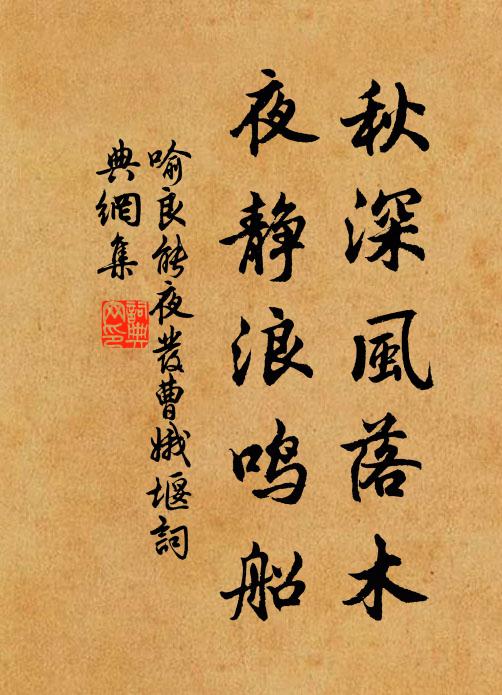 秋深風落木
夜静浪鸣船
喻良能夜發曹娥堰詞
典網集
詞典
网印